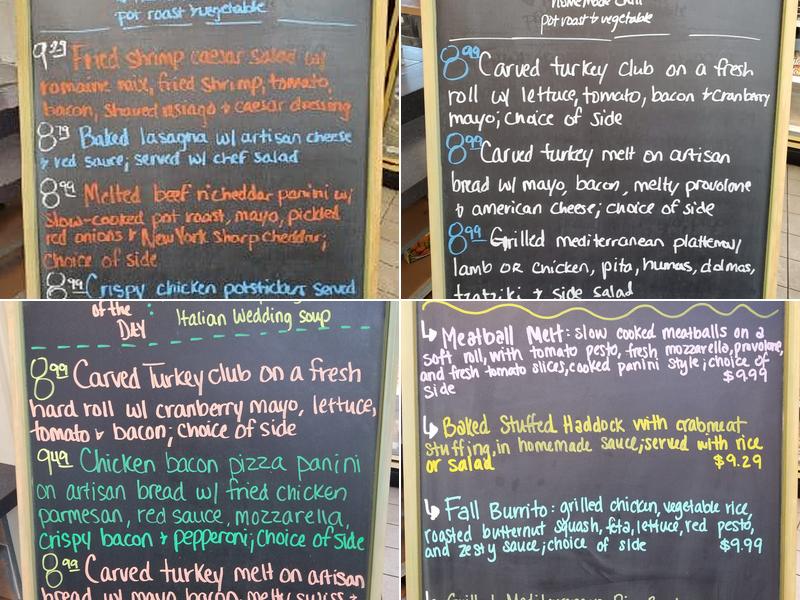 pot roast vegetable
9.29 Fried shrimp caesar salad w/
romaine mix, fried shrimp, tomato,
bacon, shaved asiago + caesar dressing
8.79 Baked lasagna w/ artisan cheese
+ red sauce; served w/ chef salad
8.99 Melted beef n'cheddar panini w/
slow-cooked pot roast, mayo, pickled
red onions + New York sharp cheddar;
choice of side
8.99 Crispy chicken potstickers served
homemade chili
pot roast + vegetable
8.99 Carved turkey club on a fresh
roll w/ lettuce, tomato, bacon + cranberry
mayo; choice of side
8.99 Carved turkey melt on artisan
bread w/ mayo, bacon, melty provolone
+ american cheese; choice of side
8.99 Grilled mediterranean platter w/
lamb or chicken, pita, humas, dolmas,
tzatziki + side salad
of the
Day :
Italian Wedding soup
8.99 Carved Turkey club on a fresh
hard roll w/ cranberry mayo, lettuce,
tomato + bacon; choice of side
9.49 Chicken bacon pizza panini
on artisan bread w/ fried chicken
parmesan, red sauce, mozzarella,
crispy bacon + pepperoni; choice of side
8.99 Carved turkey melt on artisan
bread w/ mayo, bacon, melty swiss +
Meatball Melt: slow cooked meatballs on a
soft roll, with tomato pesto, fresh mozzarella, provolone,
and fresh tomato slices, cooked panini style; choice of
side $9.99
Baked Stuffed Haddock with crabmeat
stuffing, in homemade sauce; served with rice
or salad $9.29
Fall Burrito: grilled chicken, vegetable rice,
roasted butternut squash, feta, lettuce, red pesto,
and zesty sauce; choice of side $9.99
Grilled Mediterranean